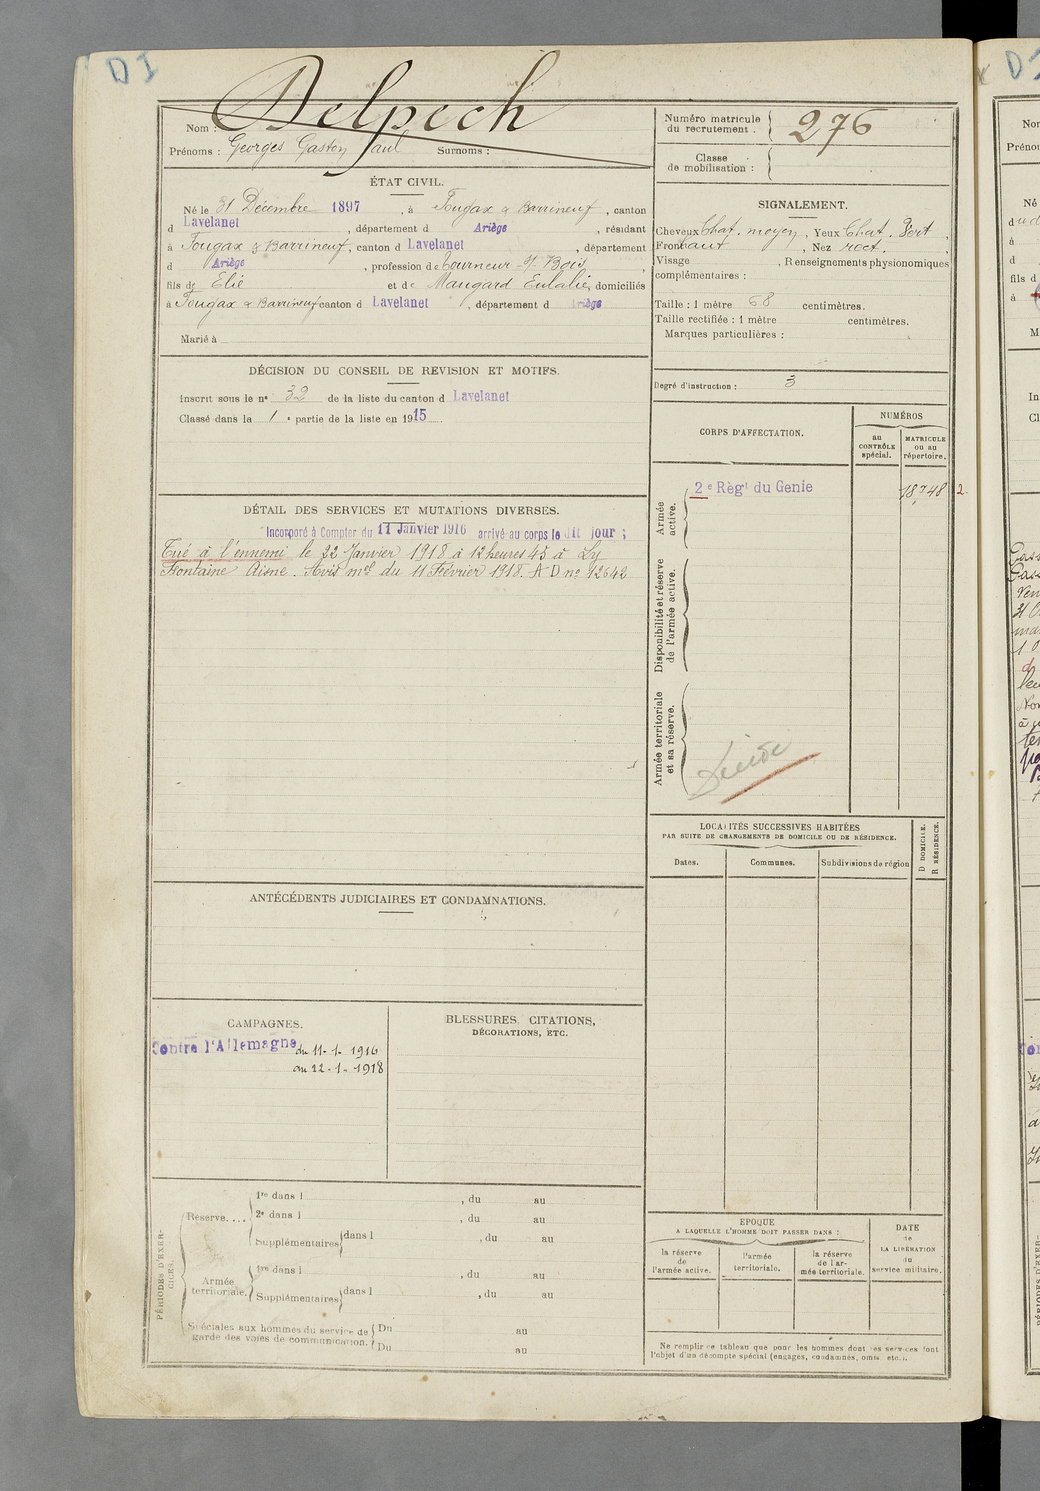 D I
Delpech
Nom :
Prénoms : Georges Gaston Paul Surnoms :
Numéro matricule du recrutement . 276
Classe de mobilisation :
ÉTAT CIVIL.
Né le 31 Décembre 1897 , à Fougax & Barrineuf , canton
d Lavelanet , département d Ariège , résidant
à Fougax & Barrineuf, canton d Lavelanet , département
d Ariège , profession de tourneur s/ Bois,
fils de Elie et de Maugard Eulalie, domiciliés
à Fougax & Barrineuf canton d Lavelanet , département d Ariège
Marié à
SIGNALEMENT.
Cheveux Chat. moyen , Yeux Chat. Vert ,
Front haut , Nez rect.
Visage , Renseignements physionomiques
complémentaires :
Taille : 1 mètre 68 centimètres.
Taille rectifiée : 1 mètre centimètres.
Marques particulières :
Degré d'instruction : 3
DÉCISION DU CONSEIL DE REVISION ET MOTIFS.
Inscrit sous le n° 32 de la liste du canton d Lavelanet
Classé dans la 1 e partie de la liste en 1915 .
CORPS D'AFFECTATION.
NUMÉROS
au CONTRÔLE spécial.
MATRICULE ou au répertoire.
Armée active.
2e Règt du Génie
18748 2.
Disponibilité et réserve de l'armée active.
Armée territoriale et sa réserve.
Décédé
DÉTAIL DES SERVICES ET MUTATIONS DIVERSES.
Incorporé à Compter du 11 Janvier 1916 arrivé au corps le dit jour ;
Tué à l'ennemi le 22 Janvier 1918 à 12 heures 45 à Ly
Fontaine Aisne. Avis mel du 11 Février 1918. A D no 12642
LOCALITÉS SUCCESSIVES HABITÉES
PAR SUITE DE CHANGEMENTS DE DOMICILE OU DE RÉSIDENCE.
Dates.
Communes.
Subdivisions de région
D DOMICILE.
R RÉSIDENCE.
ANTÉCÉDENTS JUDICIAIRES ET CONDAMNATIONS.
CAMPAGNES.
Contre l'Allemagne du 11-1-1916
au 22-1-1918
BLESSURES, CITATIONS,
DÉCORATIONS, ETC.
PÉRIODES D'EXERCICES.
Réserve....
1re dans l , du au
2e dans l , du au
Supplémentaires dans l , du au
Armée territoriale.
1re dans l , du au
Supplémentaires dans l , du au
Spéciales aux hommes du service de
garde des voies de communication.
Du au
Du au
EPOQUE
A LAQUELLE L'HOMME DOIT PASSER DANS :
la réserve de l'armée active.
l'armée territoriale.
la réserve de l'armée territoriale.
DATE de LA LIBÉRATION du service militaire.
Ne remplir ce tableau que pour les hommes dont les services font
l'objet d'un décompte spécial (engagés, condamnés, omis, etc.).